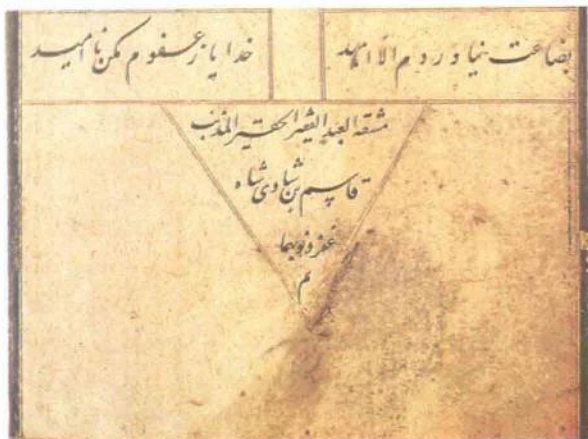 بضاعت نیاوردم الا امید
خدایا ز عفوم مکن ناامید
مشقه العبد الفقیر الحقیر المذنب
قاسم بن شادی شاه
غفر ذنوبهما
م